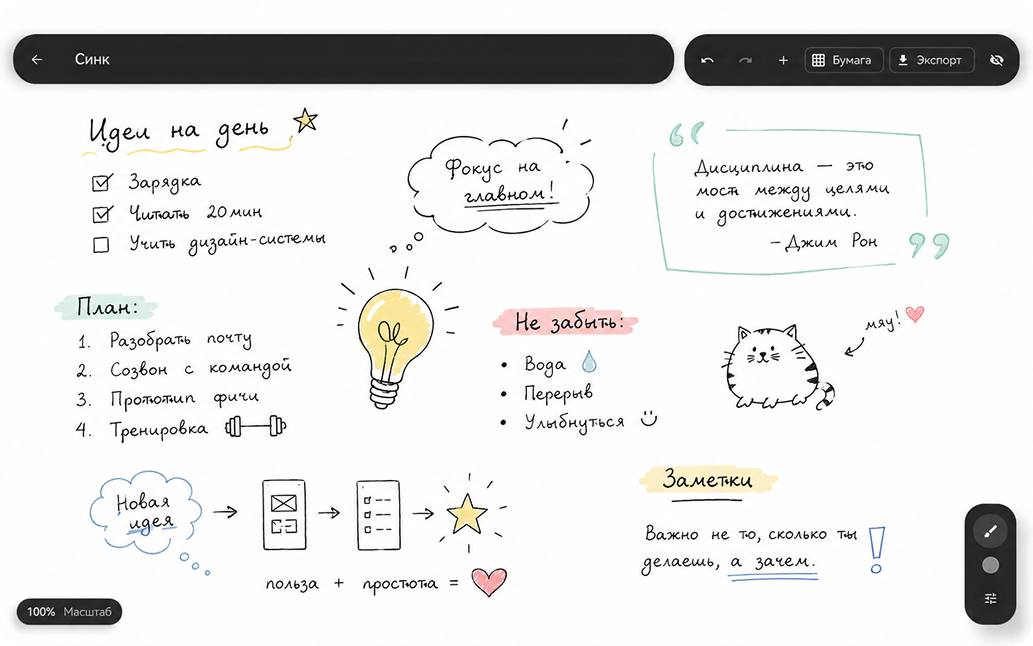 Синк
Бумага
Экспорт
Идеи на день
Зарядка
Читать 20 мин
Учить дизайн-системы
Фокус на
главном!
Дисциплина — это
мост между целями
и достижениями.
– Джим Рон
План:
1. Разобрать почту
2. Созвон с командой
3. Прототип фичи
4. Тренировка
Не забыть:
• Вода
• Перерыв
• Улыбнуться
мяу!
Новая
идея
польза + простота =
Заметки
Важно не то, сколько ты
делаешь, а зачем.
!
100% Масштаб